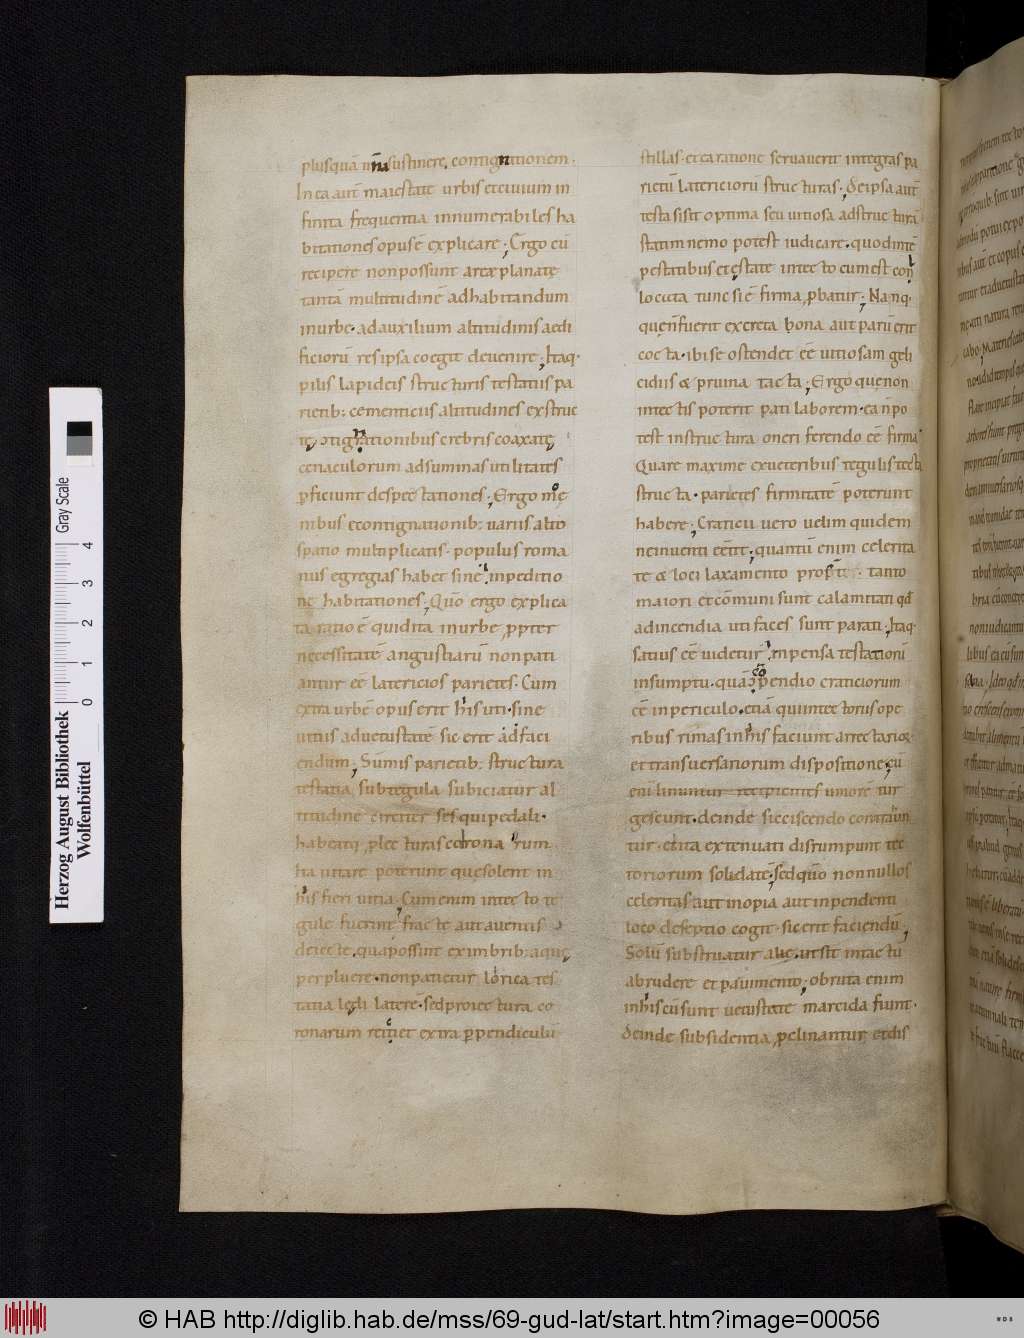 plusquā una sustinere contignationem.
In ea autē maiestate urbis et ciuium in
finita frequentia innumerabiles ha
bitationes opus ē explicare; Ergo cū
recipere non possunt areę planatę
tantā multitudinē ad habitandum
in urbe. ad auxilium altitudinis aedi
ficiorū res ipsa coegit deuenire; Itaq·
pilis lapideis structuris testatiis pa
rietib: cementiciis altitudines exstruc
tę contignationibus crebris coaxatę
cenaculorum ad summas utilitates
pficiunt despectationes; Ergo moe
nibus e contignationib: uariis alto
spatio multiplicatis. populus roma
nus egregias habet sine inpeditio
ne habitationes; Quō ergo explica
ta ratio ē quid ita in urbe ppter
necessitatē angustiarū non pati
antur eē latericios parietes. Cum
extra urbē opus erit his uti. sine
uitiis ad uetustatē sic erit ad faci
endum; Sūmis parietib: structura
testatia, sub tegula subiciatur al
titudine circiter sesquipedali.
habeatq; plecturas coronarum.
ita uitare poterunt quę solent in
his fieri uitia; Cum enim in tecto te
gulę fuerint fractę aut a uentis
deiectę, qua possint ex imbrib: aquę
per pluere. non patietur lorica tes
tatia lędi latere. sed proiectura co
ronarum reiciet extra ppendiculū
stillas. et ea ratione seruauerit integras pa
rietū latericiorū structuras; de ipsa autē
testa si sit optima seu uitiosa ad structurā
statim nemo potest iudicare. quod in tē
pestatibus et ęstate in tecto cum est con
locata tunc si ē firma pbatur; Nanq·
quę n̄ fuerit ex creta bona aut parū erit
cocta. ibi se ostendet eē uitiosam geli
cidiis & pruina tacta; Ergo quę non
in tectis poterit pati laborem. ea n̄ po
test in structura oneri ferendo eē firma
Quare maxime ex ueteribus tegulis tecta
structa. parietes firmitatē poterunt
habere; Craticii uero uelim quidem
ne inuenti eēnt; quantū enim celerita
te & loci laxamento prosūt. tanto
maiori et cōmuni sunt calamitati qđ
ad incendia uti faces sunt parati; Itaq·
satius eē uidetur inpensa testationū
in sumptu. quā cōpendio craticiorum
eē in periculo. etiā qui in tectorus ope
ribus rimas in his faciunt arrectariorū
et transuersariorum dispositione; cū
enī linuntur recipientes umore tur
gescunt. deinde siccescendo contrahūn
tur. et ita extenuati disrumpunt tec
toriorum solidatē; sed quō non nullos
celeritas aut inopia aut inpendenti
loco deseptio cogit. sic erit faciendū;
Solū substruatur alte. ut sit intactū
a brudere et pauimento; obruta enim
in his cū sunt uetustate marcida fiunt.
deinde subsidentia pclinantur et dis
Herzog August Bibliothek
Wolfenbüttel
Gray Scale
0 1 2 3 4
© HAB http://diglib.hab.de/mss/69-gud-lat/start.htm?image=00056